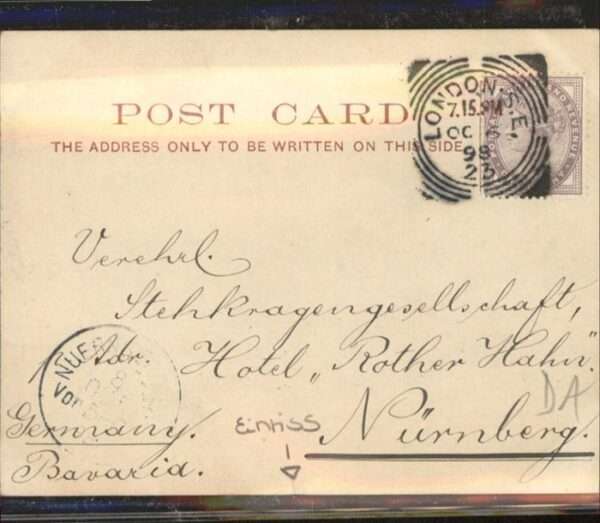 POST CARD
THE ADDRESS ONLY TO BE WRITTEN ON THIS SIDE
LONDON. S.E.
7.15.PM
OC
98
23
Verehrl.
Stehkragengesellschaft,
Adr. Hotel „Rother Hahn".
Nürnberg.
Germany.
Bavaria.
Einriss
DA